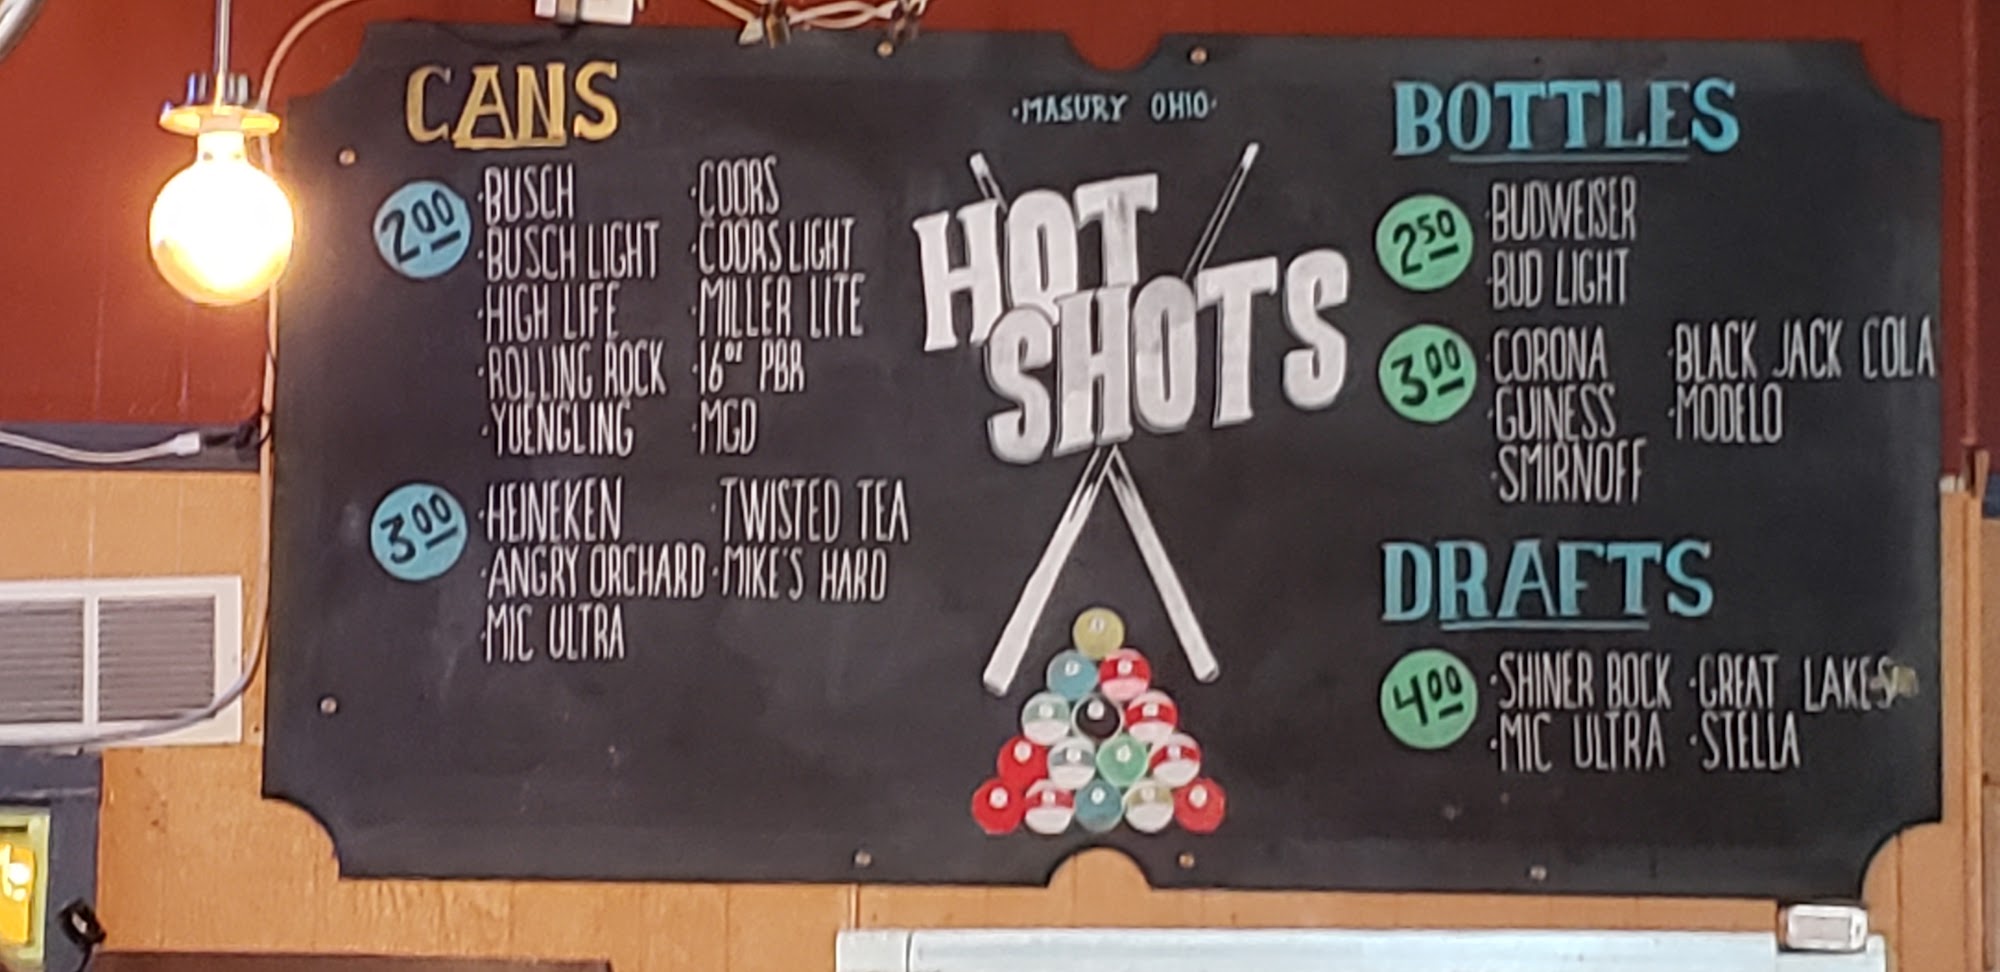 CANS
2.00
·BUSCH ·COORS
·BUSCH LIGHT ·COORS LIGHT
·HIGH LIFE ·MILLER LITE
·ROLLING ROCK ·16oz PBR
·YUENGLING ·MGD
3.00
·HEINEKEN ·TWISTED TEA
·ANGRY ORCHARD ·MIKE'S HARD
·MIC ULTRA
·MASURY OHIO·
HOT
SHOTS
BOTTLES
2.50
·BUDWEISER
·BUD LIGHT
3.00
·CORONA ·BLACK JACK COLA
·GUINESS ·MODELO
·SMIRNOFF
DRAFTS
4.00
·SHINER BOCK ·GREAT LAKES
·MIC ULTRA ·STELLA